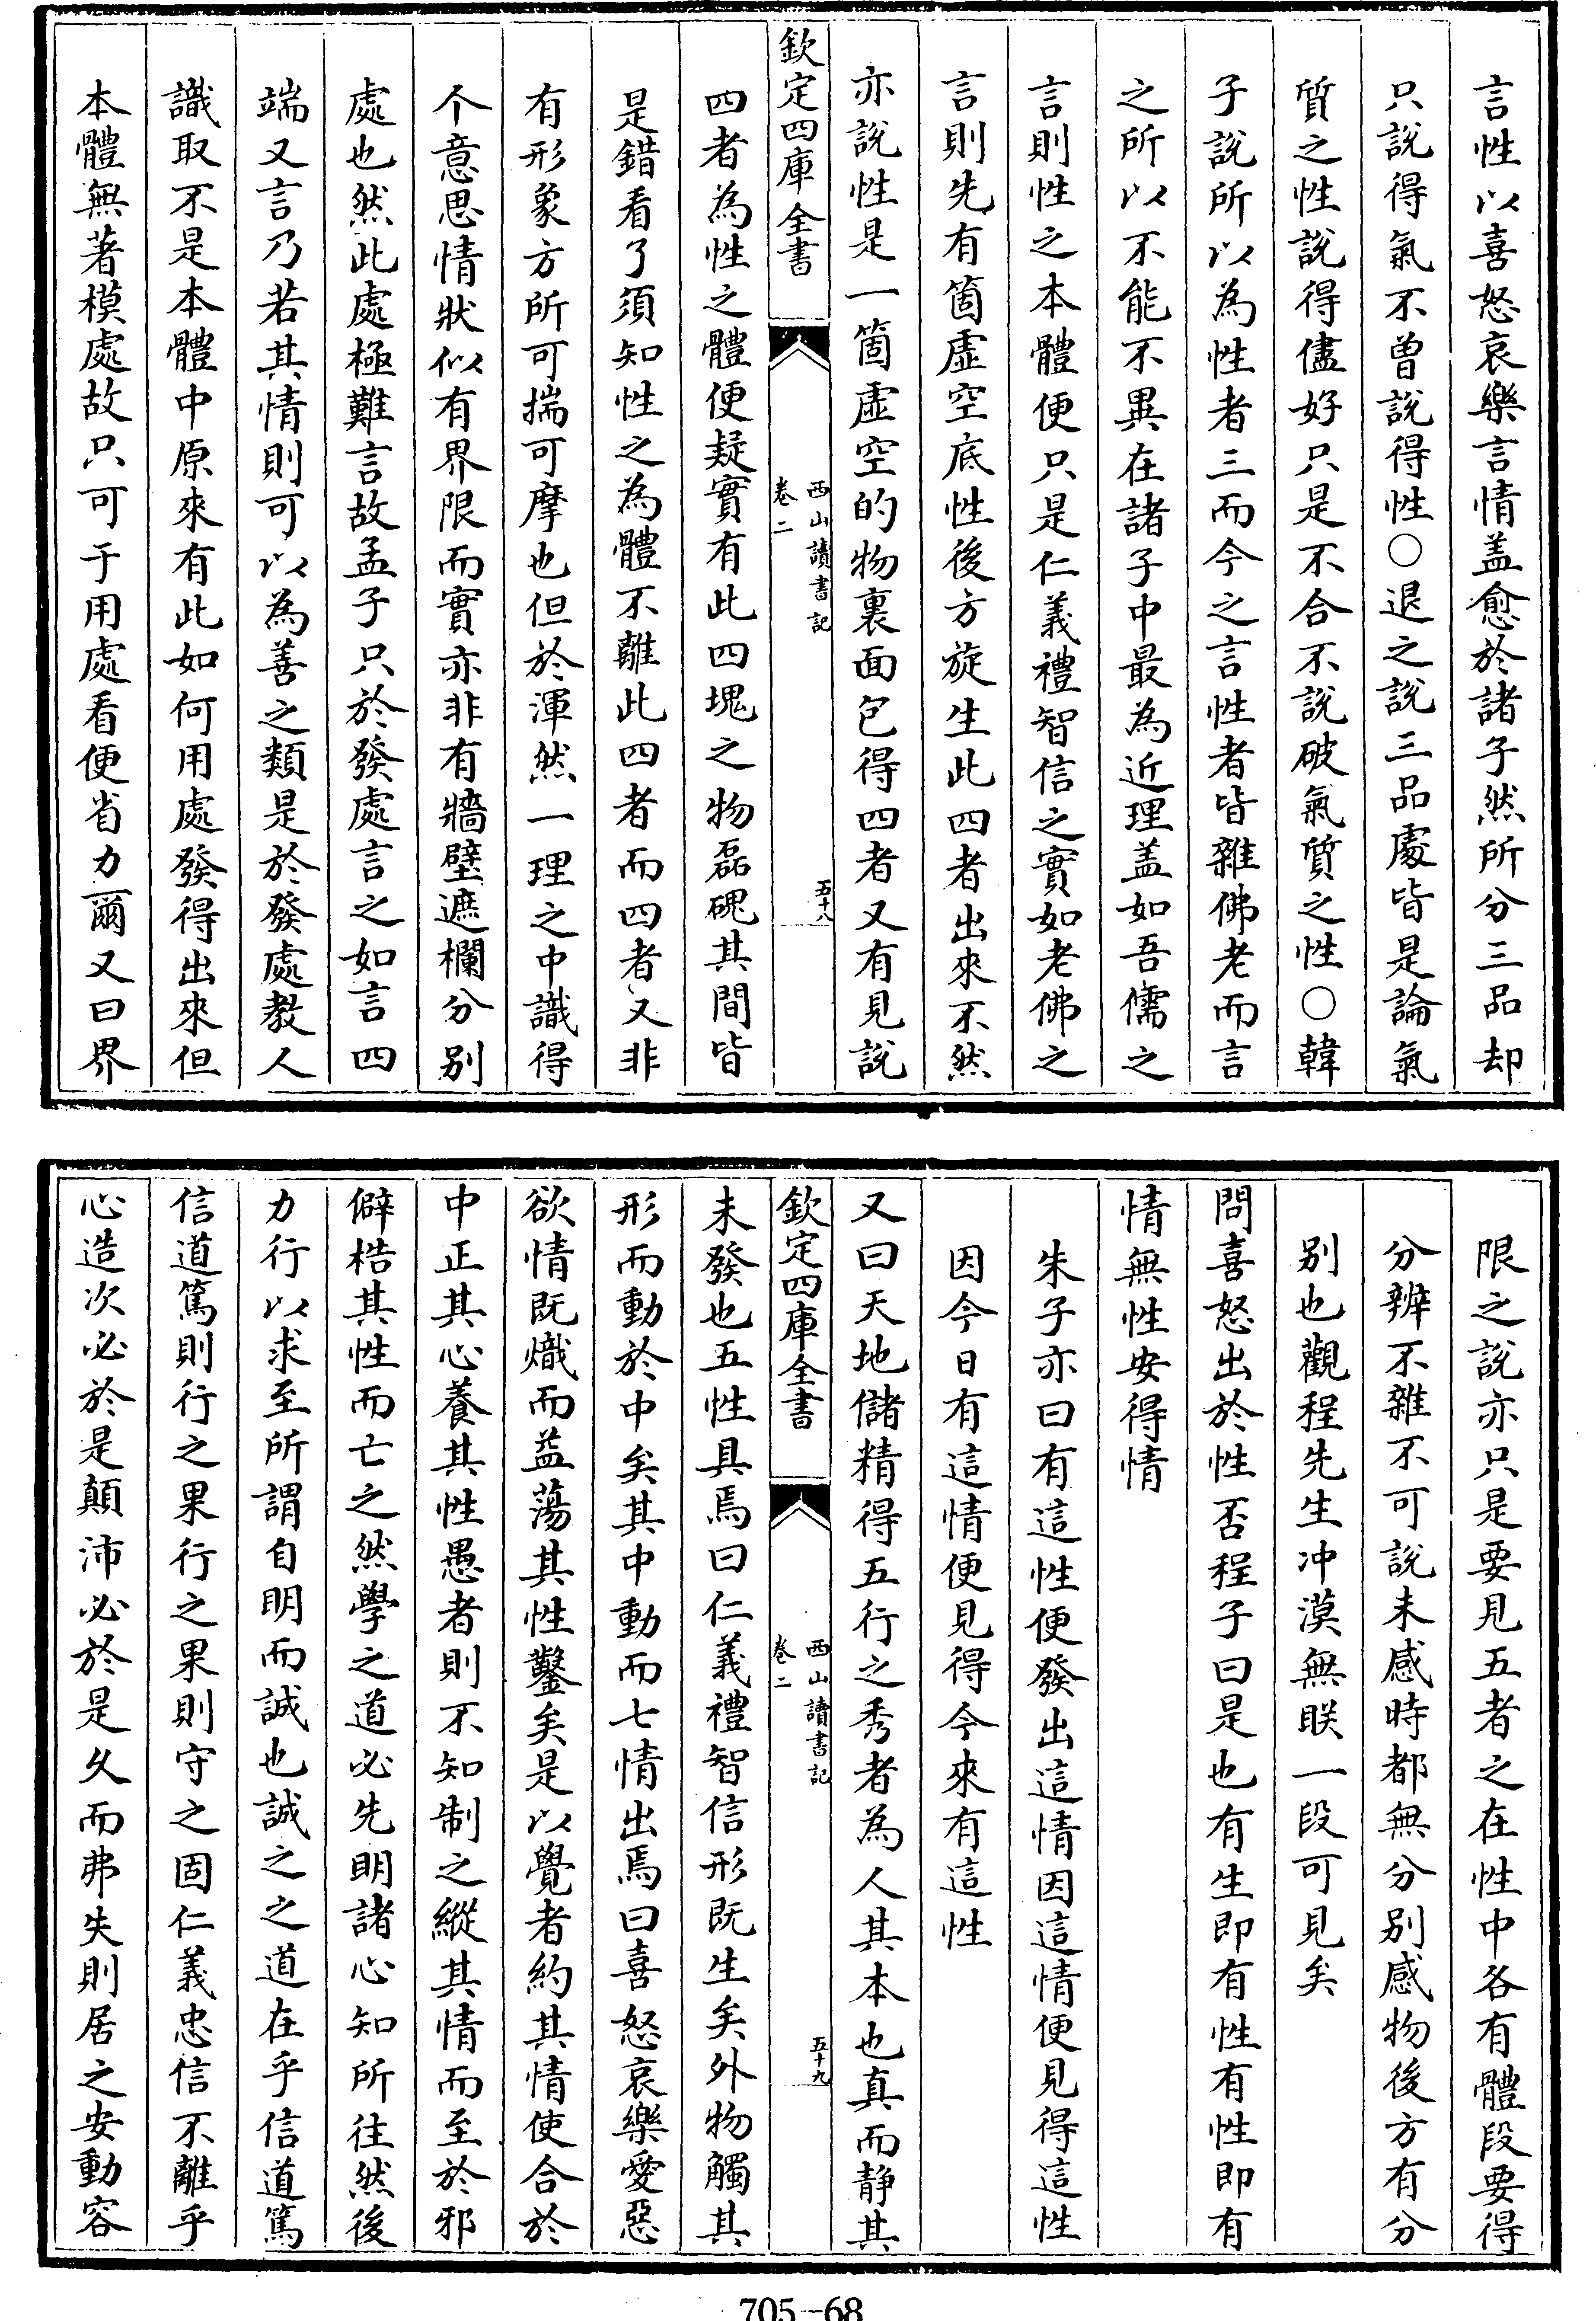 言性以喜怒哀樂言情盖愈於諸子然所分三品却
只說得氣不曾說得性○退之說三品處皆是論氣
質之性說得儘好只是不合不說破氣質之性○韓
子說所以為性者三而今之言性者皆雜佛老而言
之所以不能不異在諸子中最為近理盖如吾儒之
言則性之本體便只是仁義禮智信之實如老佛之
言則先有箇虛空底性後方旋生此四者出來不然
亦說性是一箇虛空的物裏面包得四者又有見說
欽定四庫全書
西山讀書記
卷二
五十八
四者為性之體便疑實有此四塊之物磊磈其間皆
是錯看了須知性之為體不離此四者而四者又非
有形象方所可揣可摩也但於渾然一理之中識得
个意思情狀似有界限而實亦非有牆壁遮欄分别
處也然此處極難言故孟子只於發處言之如言四
端又言乃若其情則可以為善之類是於發處教人
識取不是本體中原來有此如何用處發得出來但
本體無著模處故只可于用處看便省力爾又曰界
限之說亦只是要見五者之在性中各有體段要得
分辨不雜不可說未感時都無分别感物後方有分
别也觀程先生冲漠無眹一段可見矣
問喜怒出於性否程子曰是也有生即有性有性即有
情無性安得情
朱子亦曰有這性便發出這情因這情便見得這性
因今日有這情便見得今來有這性
又曰天地儲精得五行之秀者為人其本也真而静其
欽定四庫全書
西山讀書記
卷二
五十九
未發也五性具焉曰仁義禮智信形既生矣外物觸其
形而動於中矣其中動而七情出焉曰喜怒哀樂愛惡
欲情既熾而益蕩其性鑿矣是以覺者約其情使合於
中正其心養其性愚者則不知制之縱其情而至於邪
僻梏其性而亡之然學之道必先明諸心知所往然後
力行以求至所謂自明而誠也誠之之道在乎信道篤
信道篤則行之果行之果則守之固仁義忠信不離乎
心造次必於是顛沛必於是久而弗失則居之安動容
705-68